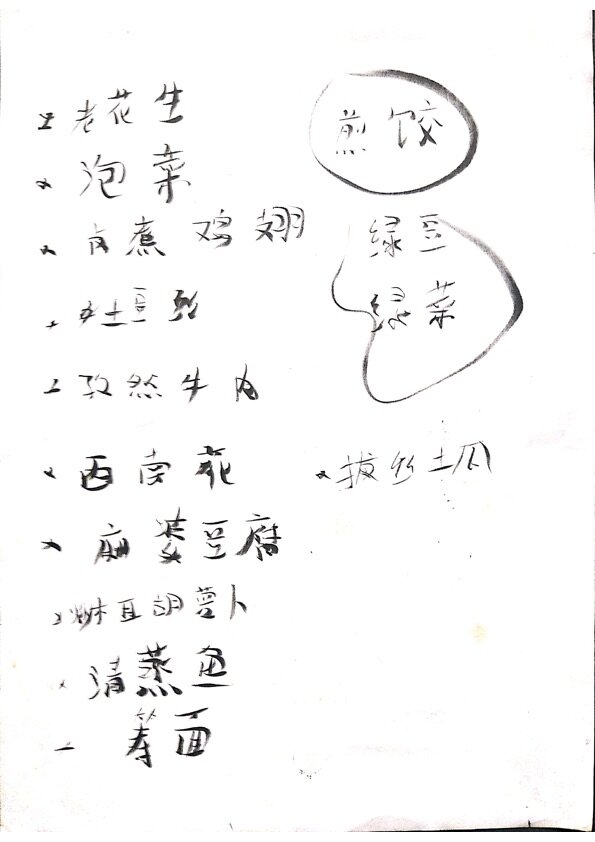 老花生
泡菜
卤煮鸡翅
土豆丝
孜然牛肉
西南花
麻婆豆腐
木耳胡萝卜
清蒸鱼
寿面
煎饺
绿豆
绿菜
拔丝土瓜